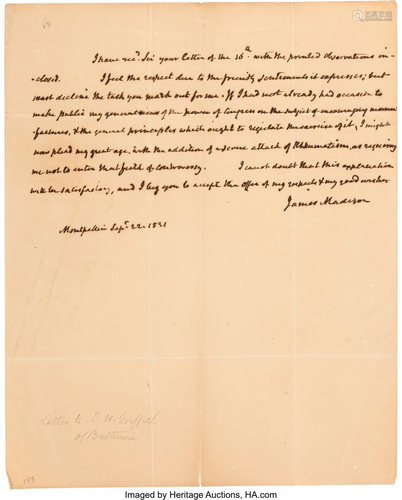 I have recd. Sir your letter of the 16th. with the printed observations in-
closed. I feel the respect due to the friendly sentiments it expresses; but
must decline the task you mark out for me. If I had not already had occasion to
make public my general views of the power of Congress on the subject of encouraging manu-
factures, & the general principles which ought to regulate the exercise of it, I might
now plead my great age, with the addition of a severe attack of Rheumatism, as requiring
me not to enter that field of controversy. I cannot doubt that this explanation
will be satisfactory, and I beg you to accept the offer of my respects & my good wishes
James Madison
Montpellier Sepr. 22. 1831
Letter to T. W. Griffith
of Baltimore
143
Imaged by Heritage Auctions, HA.com